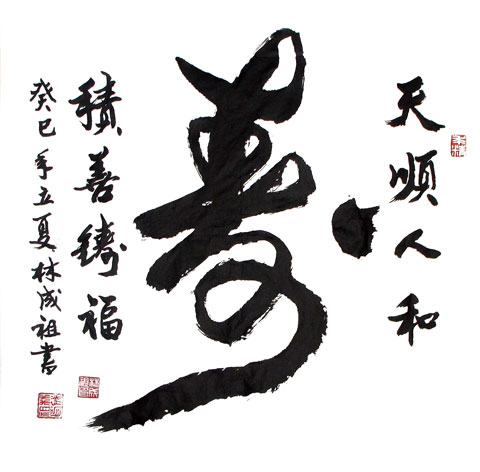 天順人和
寿
積善鑄福
癸巳年立夏林成祖書